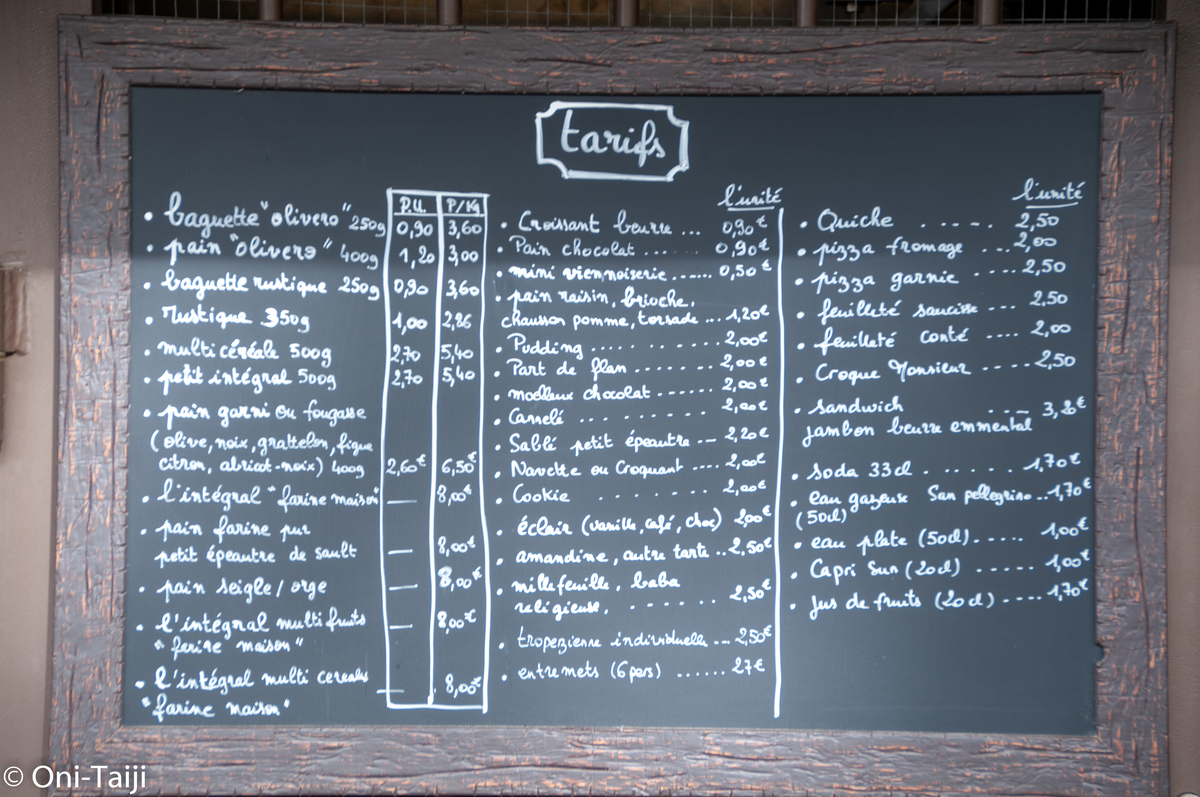 tarifs
P.U. P/Kg
• baguette "olivero" 250g 0,90 3,60
• pain "olivero" 400g 1,20 3,00
• baguette rustique 250g 0,90 3,60
• Rustique 350g 1,00 2,86
• multi céréale 500g 2,70 5,40
• petit intégral 500g 2,70 5,40
• pain garni ou fougasse
(olive, noix, grattelon, figue
citron, abricot-noix) 400g 2,60€ 6,50€
• l'intégral "farine maison" — 8,00€
• pain farine pur
petit épeautre de sault — 8,00€
• pain seigle/orge — 8,00€
• l'intégral multi fruits — 8,00€
"farine maison"
• l'intégral multi cereales — 8,00€
"farine maison"
l'unité
• Croissant beurre ... 0,90€
• Pain chocolat ...... 0,90€
• mini viennoiserie ...... 0,50€
• pain raisin, brioche,
chausson pomme, torsade ... 1,20€
• Pudding ......... 2,00€
• Part de flan ....... 2,00€
• moelleux chocolat ..... 2,00€
• Cannelé ....... 2,00€
• Sablé petit épeautre ... 2,20€
• Navette ou Croquant .... 2,00€
• Cookie ........ 2,00€
• éclair (vanille, café, choc) 2,00€
• amandine, autre tarte .. 2,50€
• millefeuille, baba
religieuse, ....... 2,50€
• tropezienne individuelle ... 2,50€
• entremets (6 pers) ...... 27€
l'unité
• Quiche ..... 2,50
• pizza fromage .... 2,00
• pizza garnie .... 2,50
• feuilleté saucisse ... 2,50
• feuilleté conté .... 2,00
• Croque Monsieur ..... 2,50
• sandwich .... 3,20€
jambon beurre emmental
• soda 33cl ....... 1,70€
• eau gazeuse San pellegrino .. 1,70€
(50cl)
• eau plate (50cl) ..... 1,00€
• Capri Sun (20cl) ..... 1,00€
• jus de fruits (20cl) ..... 1,70€
© Oni-Taiji